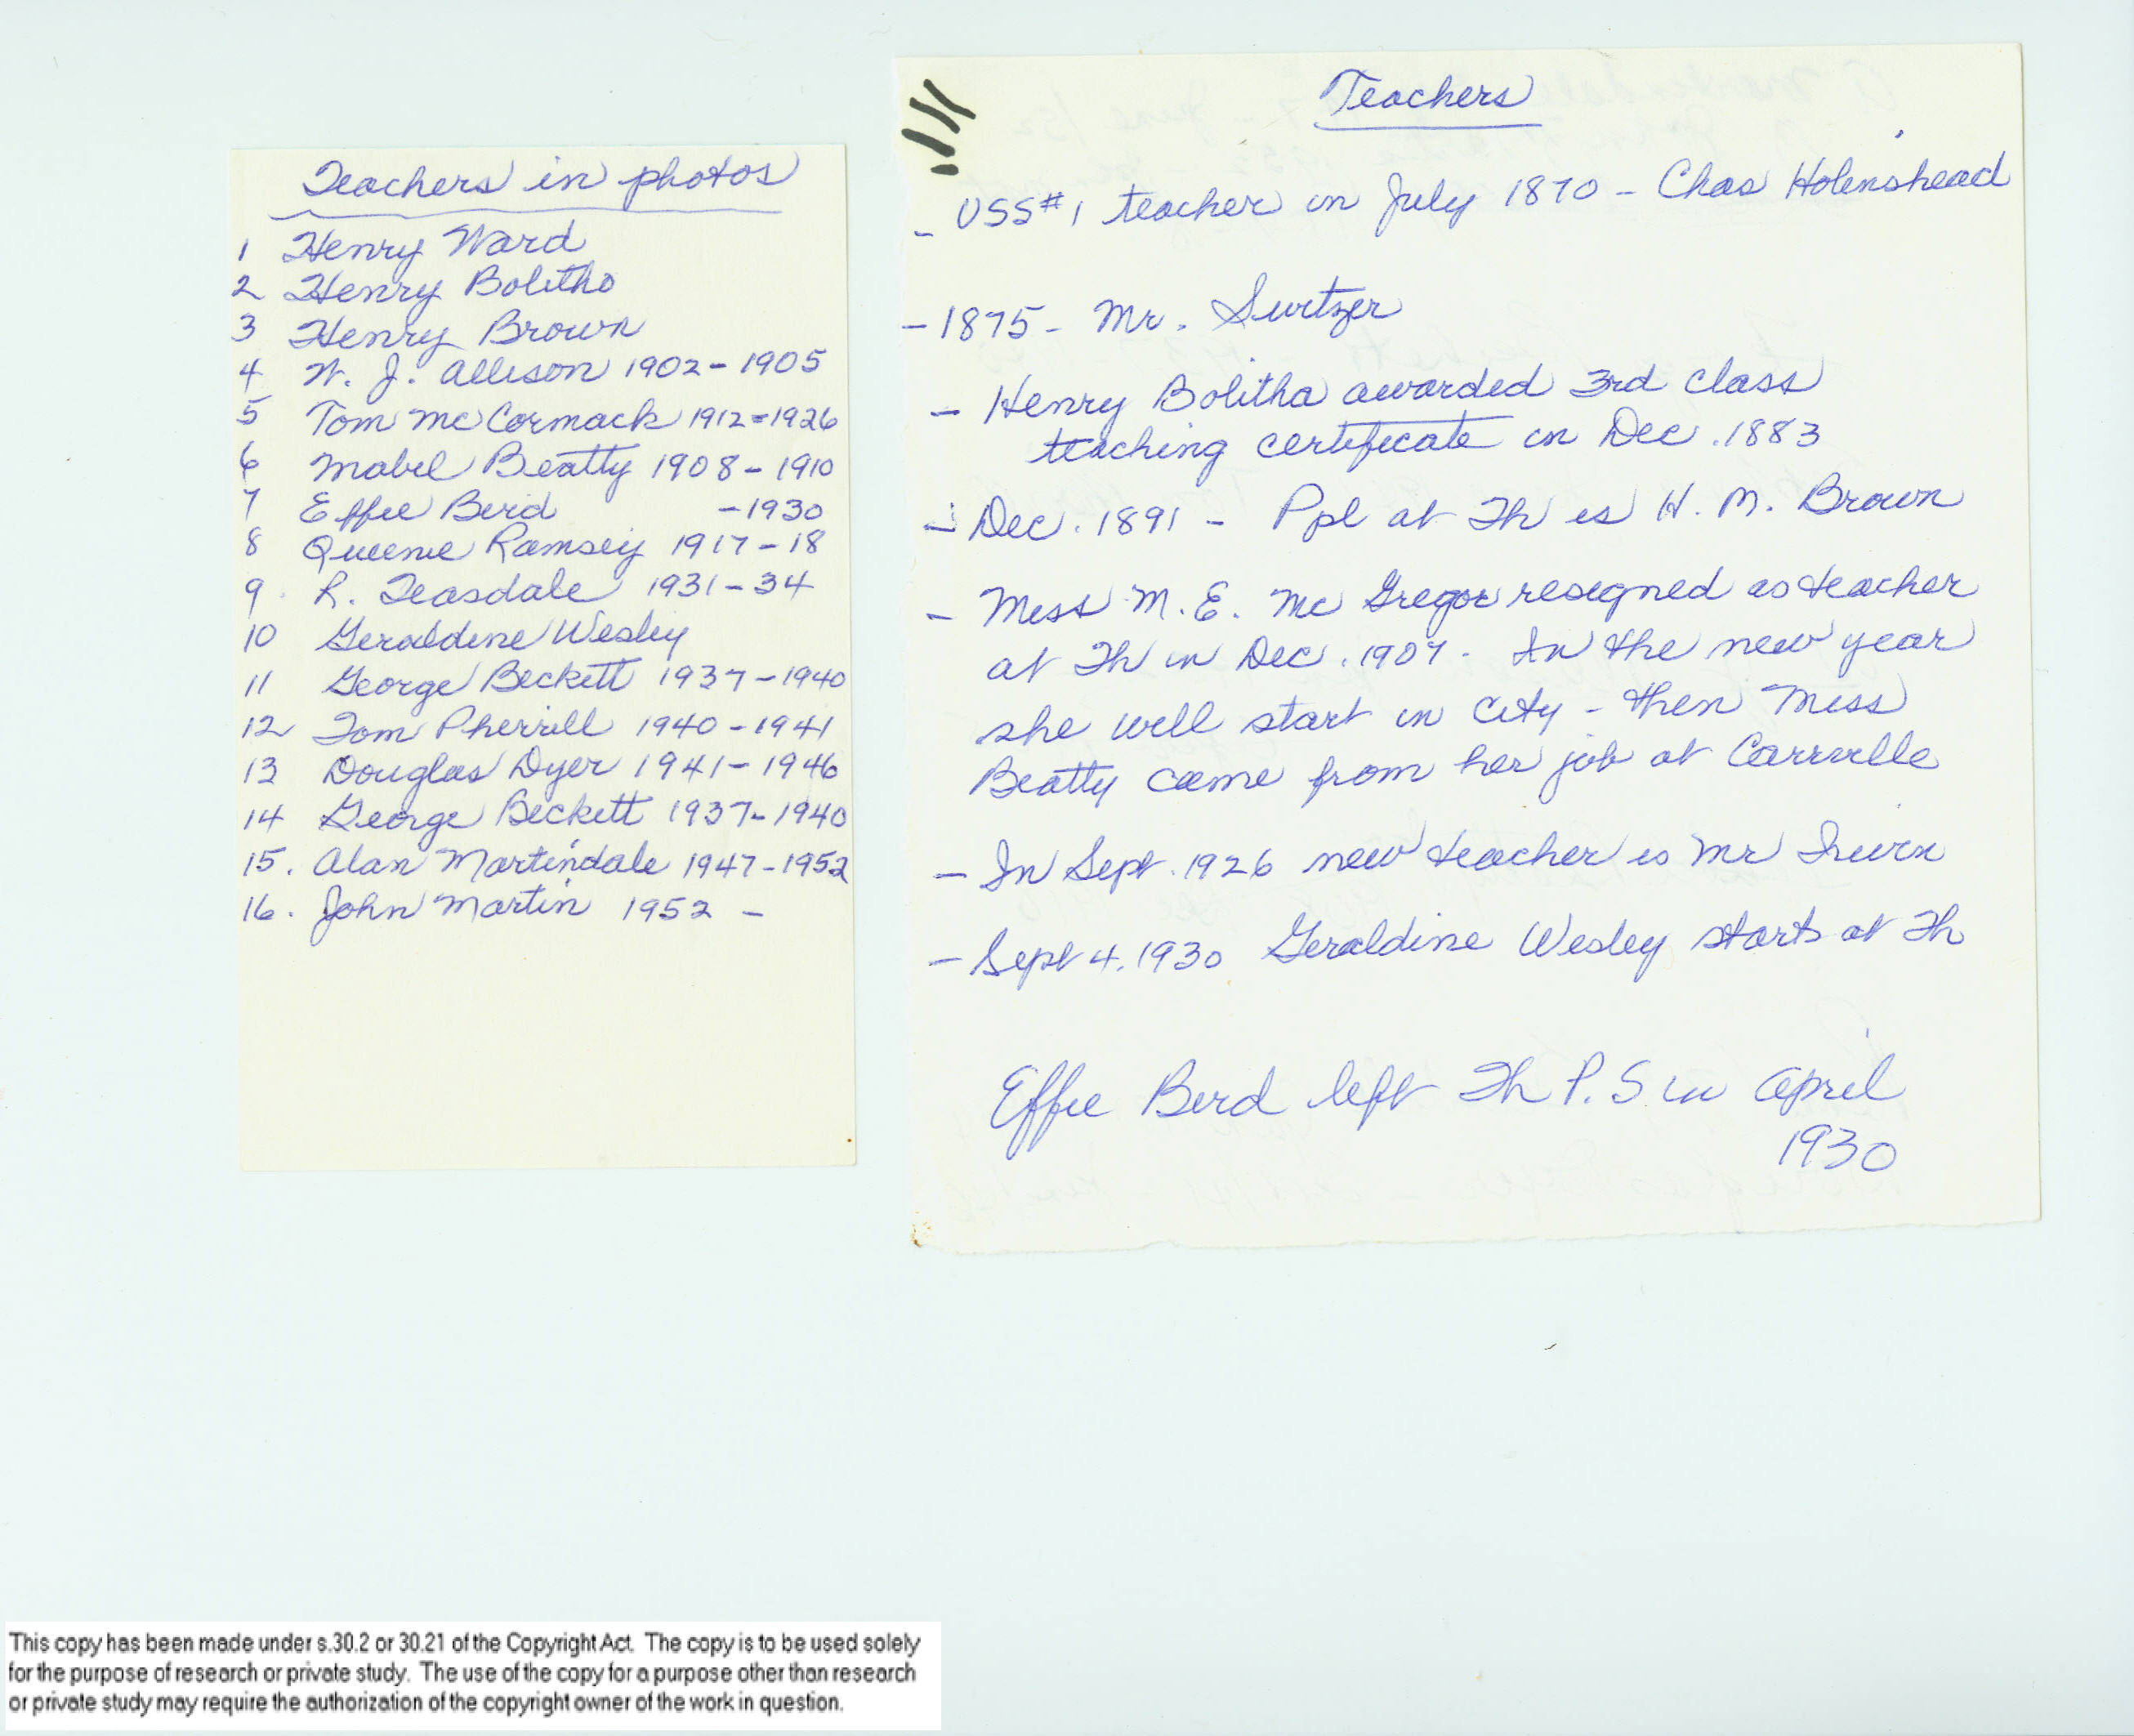 Teachers in photos
1 Henry Ward
2 Henry Bolitho
3 Henry Brown
4 W. J. Allison 1902 - 1905
5 Tom McCormack 1912 - 1926
6 Mabel Beatty 1908 - 1910
7 Effie Bird - 1930
8 Queenie Ramsey 1917 - 18
9. R. Teasdale 1931 - 34
10 Geraldine Wesley
11 George Beckett 1937 - 1940
12 Tom Pherrill 1940 - 1941
13 Douglas Dyer 1941 - 1946
14 George Beckett 1937 - 1940
15. Alan Martindale 1947 - 1952
16. John Martin 1952 -
Teachers
- USS #1 teacher in July 1870 - Chas Holinshead
- 1875 - Mr.
- Henry Bolitha awarded 3rd class
teaching certificate in Dec. 1883
- Dec. 1891 - Ppl at Th is H. M. Brown
- Miss M. E. McGregor resigned as teacher
at Th in Dec. 1907. In the new year
she will start in City - then Miss
Beatty came from her job at Carrville
- In Sept. 1926 new teacher is Mr Irwin
- Sept 4. 1930 Geraldine Wesley starts at Th
Effie Bird left Th P.S in April
1930
This copy has been made under s.30.2 or 30.21 of the Copyright Act. The copy is to be used solely
for the purpose of research or private study. The use of the copy for a purpose other than research
or private study may require the authorization of the copyright owner of the work in question.